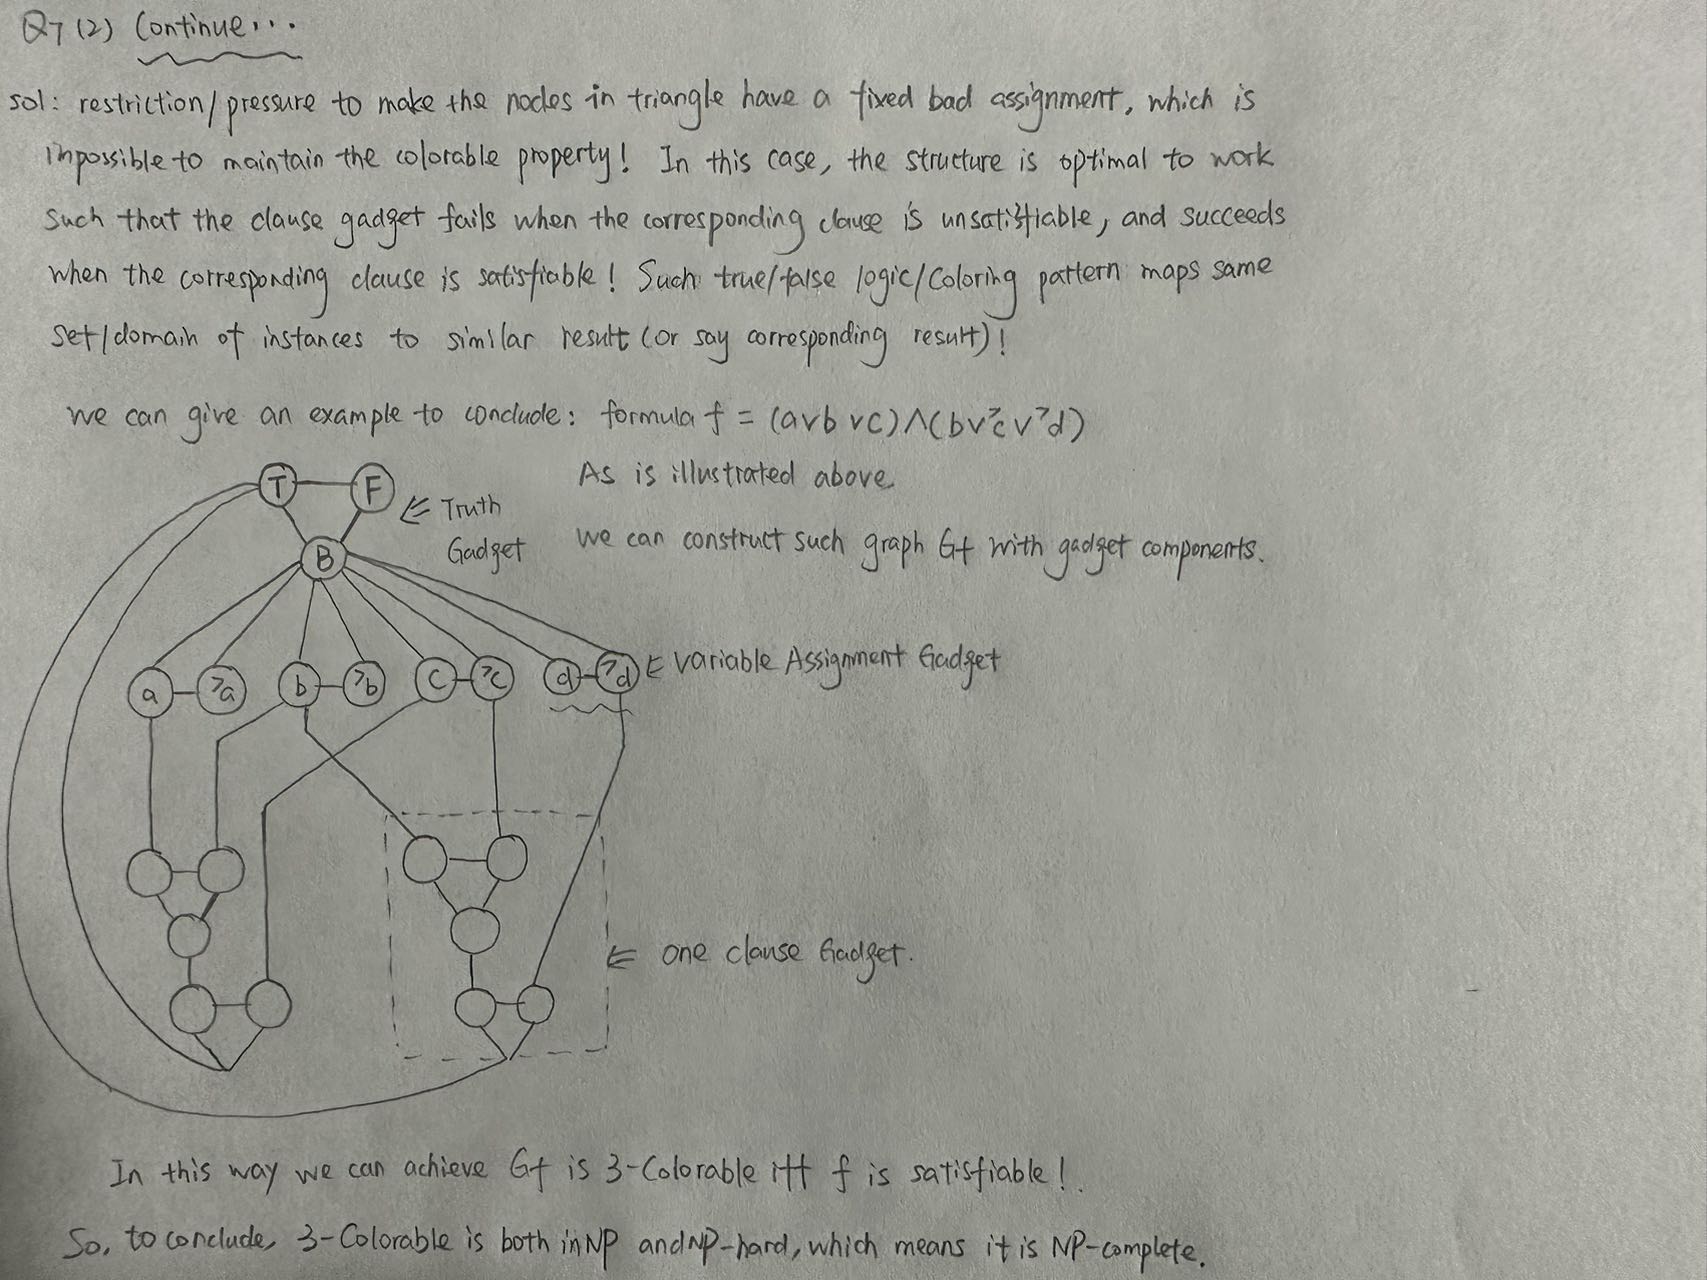 Q7 (2) Continue...
sol: restriction/pressure to make the nodes in triangle have a fixed bad assignment, which is
impossible to maintain the colorable property! In this case, the structure is optimal to work
such that the clause gadget fails when the corresponding clause is unsatisfiable, and succeeds
when the corresponding clause is satisfiable! Such true/false logic/Coloring pattern maps same
set/domain of instances to similar result (or say corresponding result)!
we can give an example to conclude: formula f = (a∨b∨c)∧(b∨¬c∨¬d)
As is illustrated above.
T F
⇐ Truth
Gadget
B
we can construct such graph Gf with gadget components.
a ¬a b ¬b c ¬c d ¬d ⇐ Variable Assignment Gadget
⇐ one clause Gadget.
In this way we can achieve Gf is 3-Colorable iff f is satisfiable!
So, to conclude, 3-Colorable is both in NP and NP-hard, which means it is NP-complete.